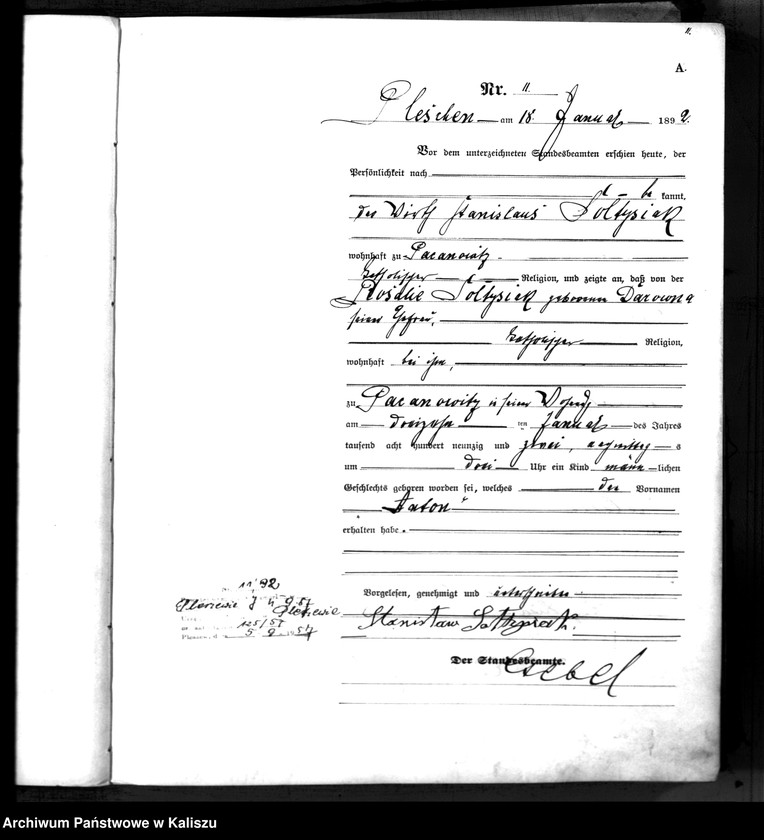 11.
A.
Nr. 11.
Pleschen am 18. Januar 1892.
Vor dem unterzeichneten Standesbeamten erschien heute, der
Persönlichkeit nach
kannt,
der Wirth Stanislaus Soltysiak
wohnhaft zu Pacanowitz
katholischer Religion, und zeigte an, daß von der
Rosalie Soltysiak geborenen Darowna
seiner Ehefrau,
katholischer Religion,
wohnhaft bei ihm,
zu Pacanowitz in seiner Wohnung
am dreizehnten Januar des Jahres
tausend acht hundert neunzig und zwei, Nachmittags
um drei Uhr ein Kind männlichen
Geschlechts geboren worden sei, welches den Vornamen
Anton
erhalten habe.
Vorgelesen, genehmigt und unterschrieben
Stanislaw
Der Standesbeamte.
11/92
Pleszewie
125/57
Archiwum Państwowe w Kaliszu